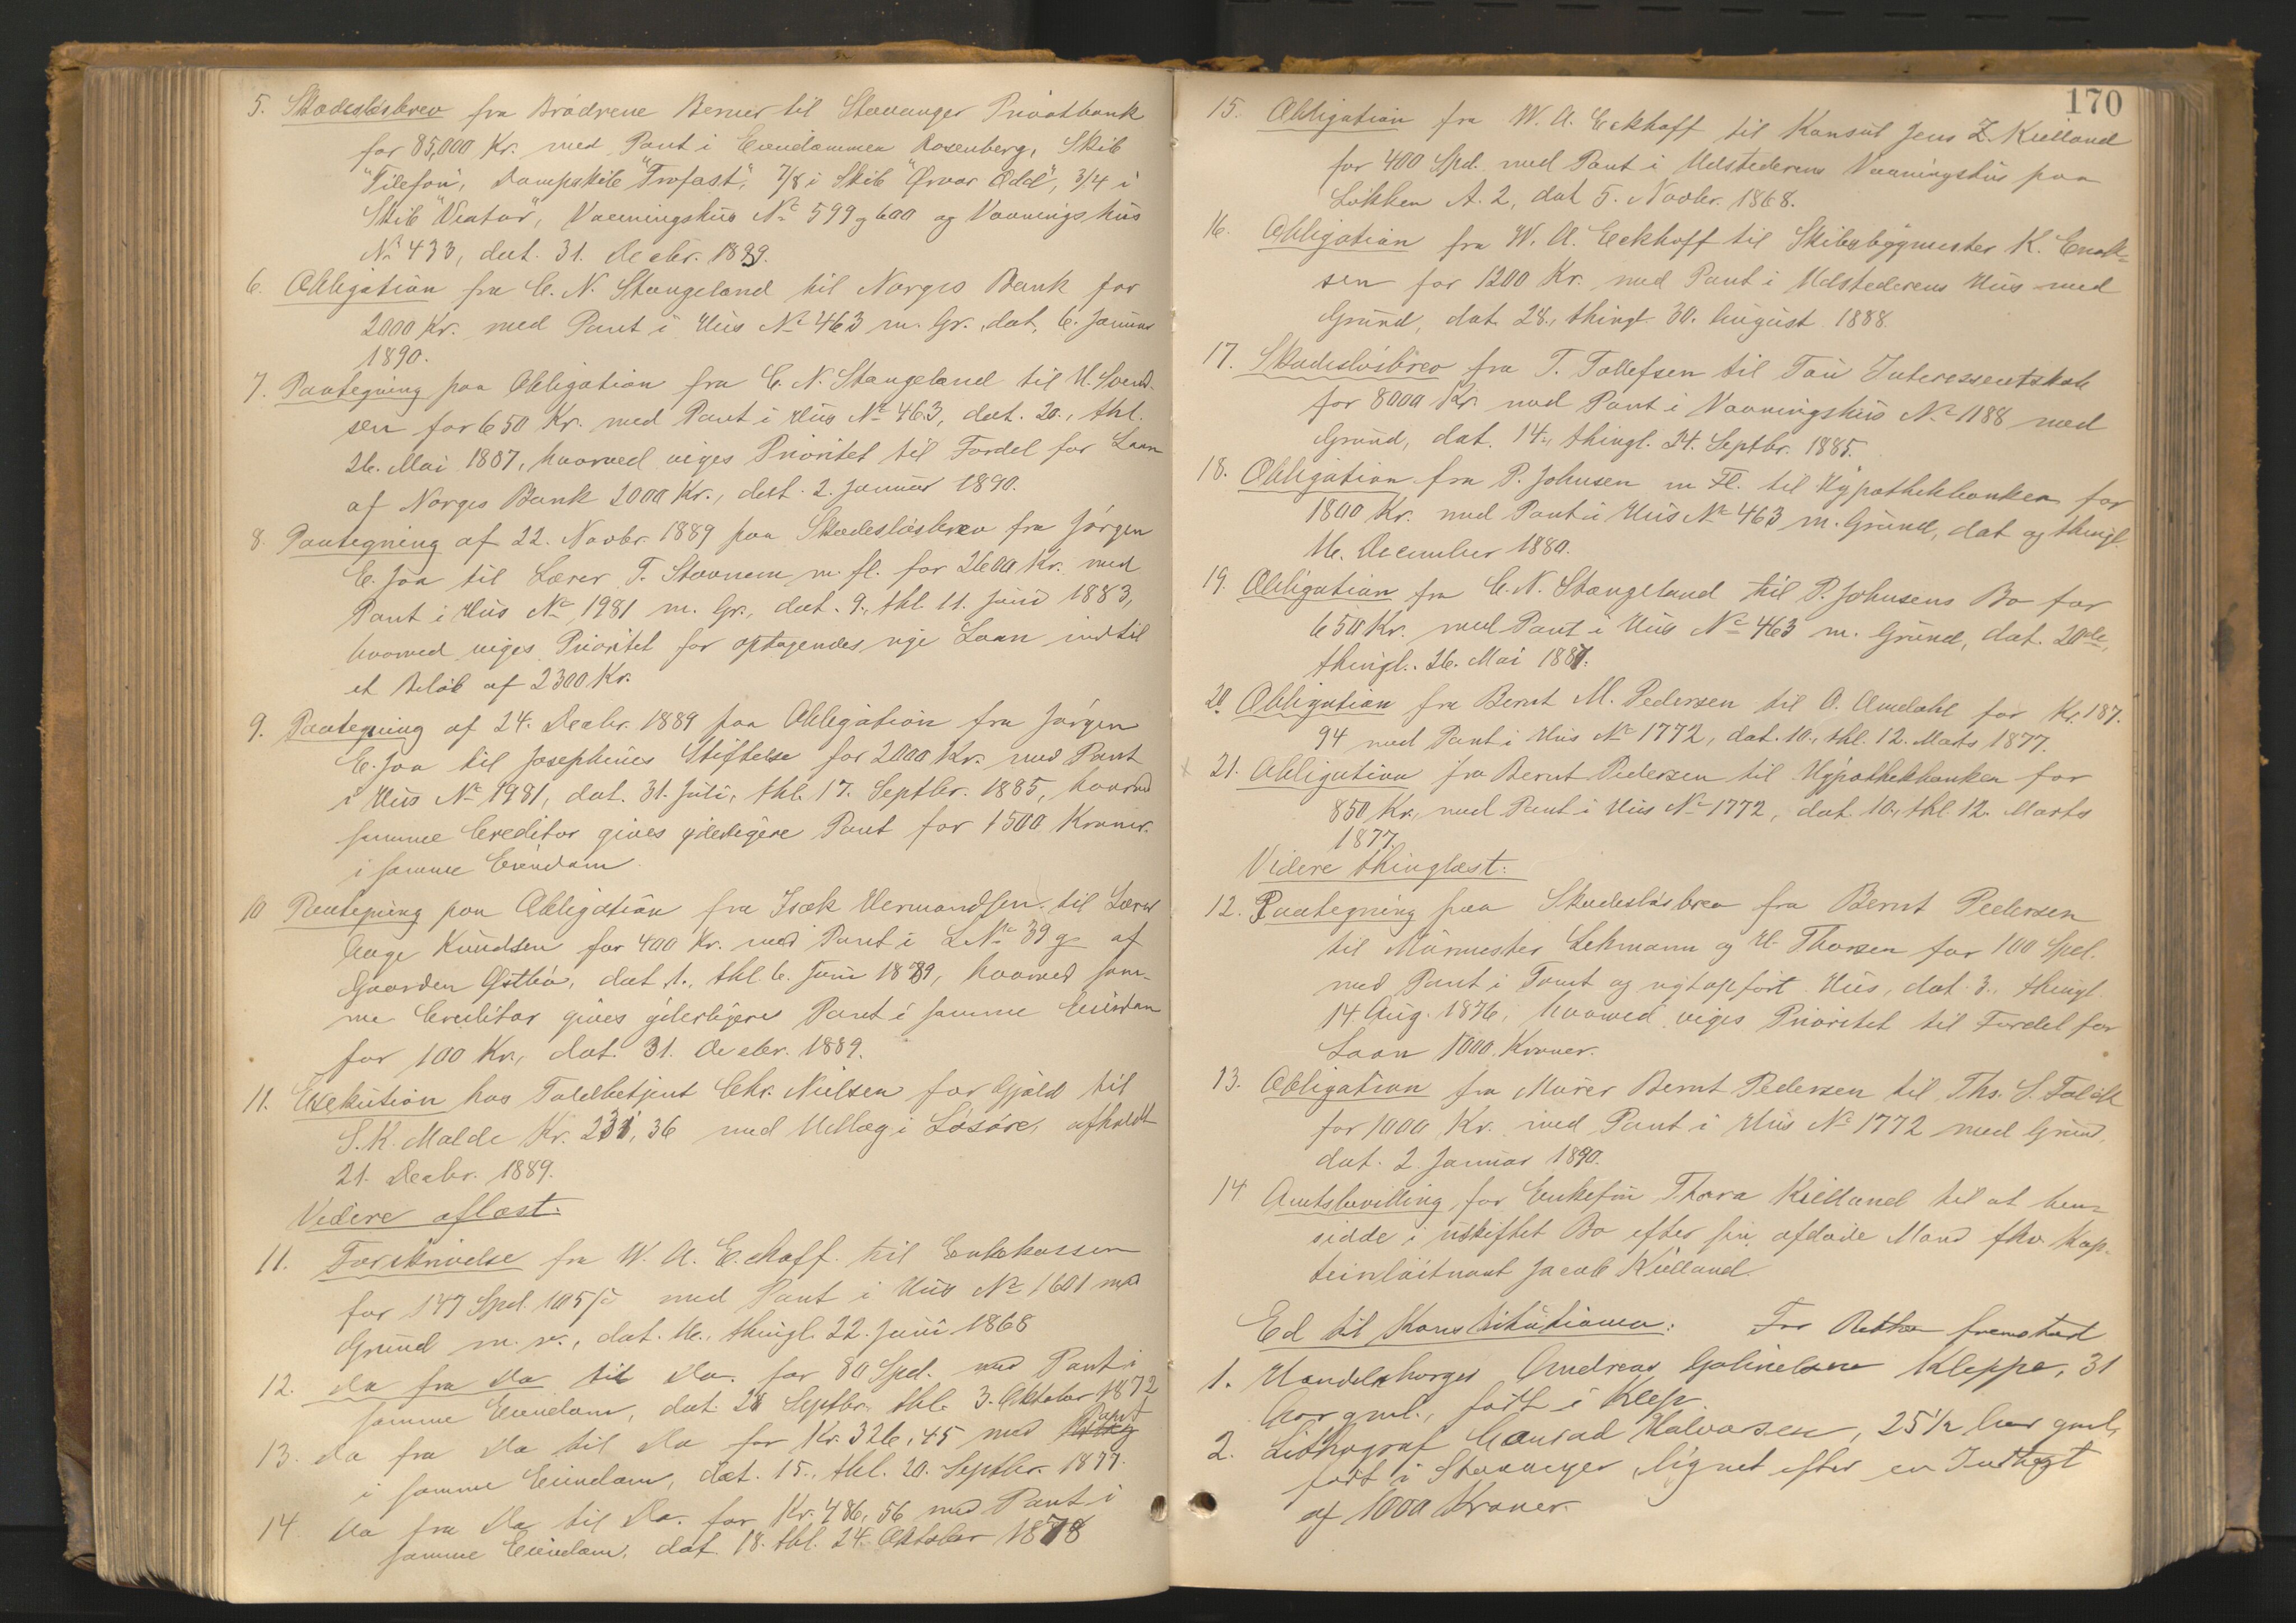 5. Skadesløsbrev fra Brødrene Berner til Stavanger Privatbank
for 85,000 Kr. med Pant i Eiendommen Rosenberg, Skib
"Telefon", Dampskib "Trofast", 7/8 i Skib "Ørvar Odd", 3/4 i
Skib "Viator", Vaaningshus No 599 og 600 og Vaaningshus
No 433, dat. 31. Decbr. 1889.
6. Obligation fra C. N. Stangeland til Norges Bank for
2000 Kr. med Pant i Hus No 463 m. Gr., dat. 6. Januar
1890.
7. Paategning paa Obligation fra C. N. Stangeland til H. Svend-
sen for 650 Kr. med Pant i Hus No 463, dat. 20., thl.
26. Mai 1887, hvorved viges Prioritet til Fordel for Laan
af Norges Bank 2000 Kr., dat. 2. Januar 1890.
8. Paategning af 22. Novbr. 1889 paa Skadesløsbrev fra Jørgen
E. Joa til Lærer T. Stavnem m. fl. for 2600 Kr. med
Pant i Hus No 1981 m. Gr., dat. 9., thl. 11. Juni 1883,
hvorved viges Prioritet for optagendes nye Laan indtil
et Beløb af 2300 Kr.
9. Paategning af 24. Decbr. 1889 paa Obligation fra Jørgen
E. Joa til Josephines Stiftelse for 2000 Kr. med Pant
i Hus No 1981, dat. 31. Juli, thl. 17. Septbr. 1885, hvorved
samme Creditor gives yderligere Pant for 1500 Kroner
i samme Eiendom.
10 Paategning paa Obligation fra Isak Hermandsen til Lærer
Aage Knudsen for 400 Kr. med Pant i L No 39 g af
Gaarden Østbø, dat. 1., thl. 6. Juni 1889, hvorved sam-
me Creditor gives yderligere Pant i samme Eiendom
for 100 Kr., dat. 31. Decbr. 1889.
11. Exekution hos Toldbetjent Chr. Nielsen for Gjæld til
S. K. Malde Kr. 231,36 med Udlæg i Løsøre, afholdt
21. Decbr. 1889.
Videre aflæst:
11. Forskrivelse fra W. A. Eckhoff til Enkekassen
for 147 Spd. 105 ß med Pant i Hus No 1601 med
Grund m. v., dat. 16., thingl. 22. Juni 1868
12. Do fra Do til Do. for 80 Spd. med Pant i
samme Eiendom, dat. 28 Septbr. thl. 3. Oktober 1872
13. Do fra Do til Do for Kr. 326,45 med Pant
i samme Eiendom, dat. 15., thl. 20. Septbr. 1877.
14. Do fra Do til Do. for Kr. 486,56 med Pant i
samme Eiendom, dat. 18. thl. 24. Oktober 1878
170
15. Obligation fra W. A. Eckhoff til Konsul Jens Z. Kielland
for 400 Spd. med Pant i Udstederens Vaaningshus paa
Løkken A. 2, dat 5. Novbr. 1868.
16. Obligation fra W. A. Eckhoff til Skibsbygmester K. Enok-
sen for 1200 Kr. med Pant i Udstederens Hus med
Grund, dat. 28., thingl. 30. August 1888.
17. Skadesløsbrev fra T. Tollefsen til Tou Interessentskab
for 8000 Kr. med Pant i Vaaningshus No 1188 med
Grund, dat. 14., thingl. 24. Septbr. 1885.
18. Obligation fra P. Johnsen m Fl. til Hypothekbanken for
1800 Kr. med Pant i Hus No 463 m. Grund, dat og thingl.
16. December 1880.
19. Obligation fra C. N. Stangeland til P. Johnsens Bo for
650 Kr. med Pant i Hus No 463 m. Grund, dat. 20de,
thingl. 26. Mai 1887.
20. Obligation fra Bernt M. Pedersen til O. Omdahl for Kr. 187.
94 med Pant i Hus No 1772, dat. 10., thl. 12. Marts 1877.
x 21. Obligation fra Bernt Pedersen til Hypothekbanken for
850 Kr. med Pant i Hus No 1772, dat. 10., thl. 12. Marts
1877.
Videre thinglæst:
12. Paategning paa Skadesløsbrev fra Bernt Pedersen
til Murmester Lehmann og H. Thorsen for 100 Spd.
med Pant i Tomt og nytopført Hus, dat. 3., thingl.
14 Aug. 1876, hvorved viges Prioritet til Fordel for
Laan 1000 Kroner.
13. Obligation fra Murer Bernt Pedersen til Ths. S. Falck
for 1000 Kr. med Pant i Hus No 1772 med Grund,
dat. 2. Januar 1890.
14. Amtsbevilling for Enkefru Thora Kielland til at hen-
sidde i uskiftet Bo efter sin afdøde Mand fhv. Kap-
teinløitnant Jacob Kielland.
Ed til Konstitutionen: For Retten fremstod
1. Handelsborger Andreas Gabrielsen Kleppe, 31
Aar gml., født i Klep.
2. Lithograf Conrad Halvorsen, 25 1/2 Aar gml.,
født i Stavanger, lignet efter en Indtægt
af 1000 Kroner.